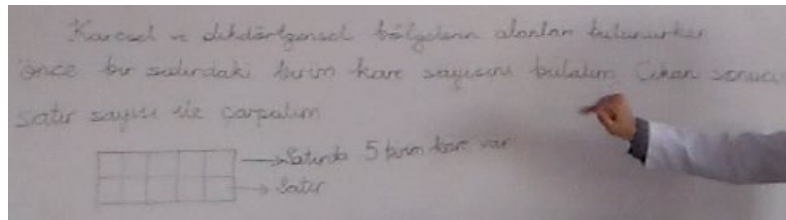 Karesel ve dikdörtgensel bölgelerin alanları bulunurken
önce bir satırdaki birim kare sayısını bulalım Çıkan sonucu
satır sayısı ile çarpalım
Satırda 5 birim kare var
Satır